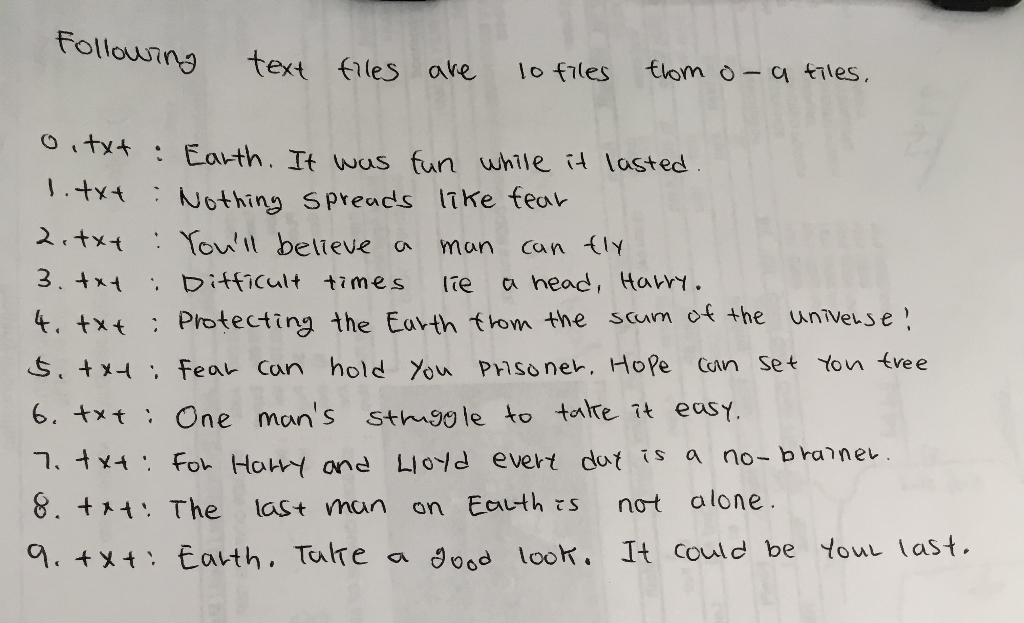 Following text files are 10 files from 0-9 files.
0.txt : Earth. It was fun while it lasted.
1.txt : Nothing spreads like fear
2.txt : You'll believe a man can fly
3.txt : Difficult times lie a head, Harry.
4.txt : Protecting the Earth from the scum of the universe!
5.txt : Fear can hold you prisoner. Hope can set you free
6.txt : One man's struggle to take it easy.
7.txt : For Harry and Lloyd every day is a no-brainer.
8.txt : The last man on Earth is not alone.
9.txt : Earth. Take a good look. It could be your last.